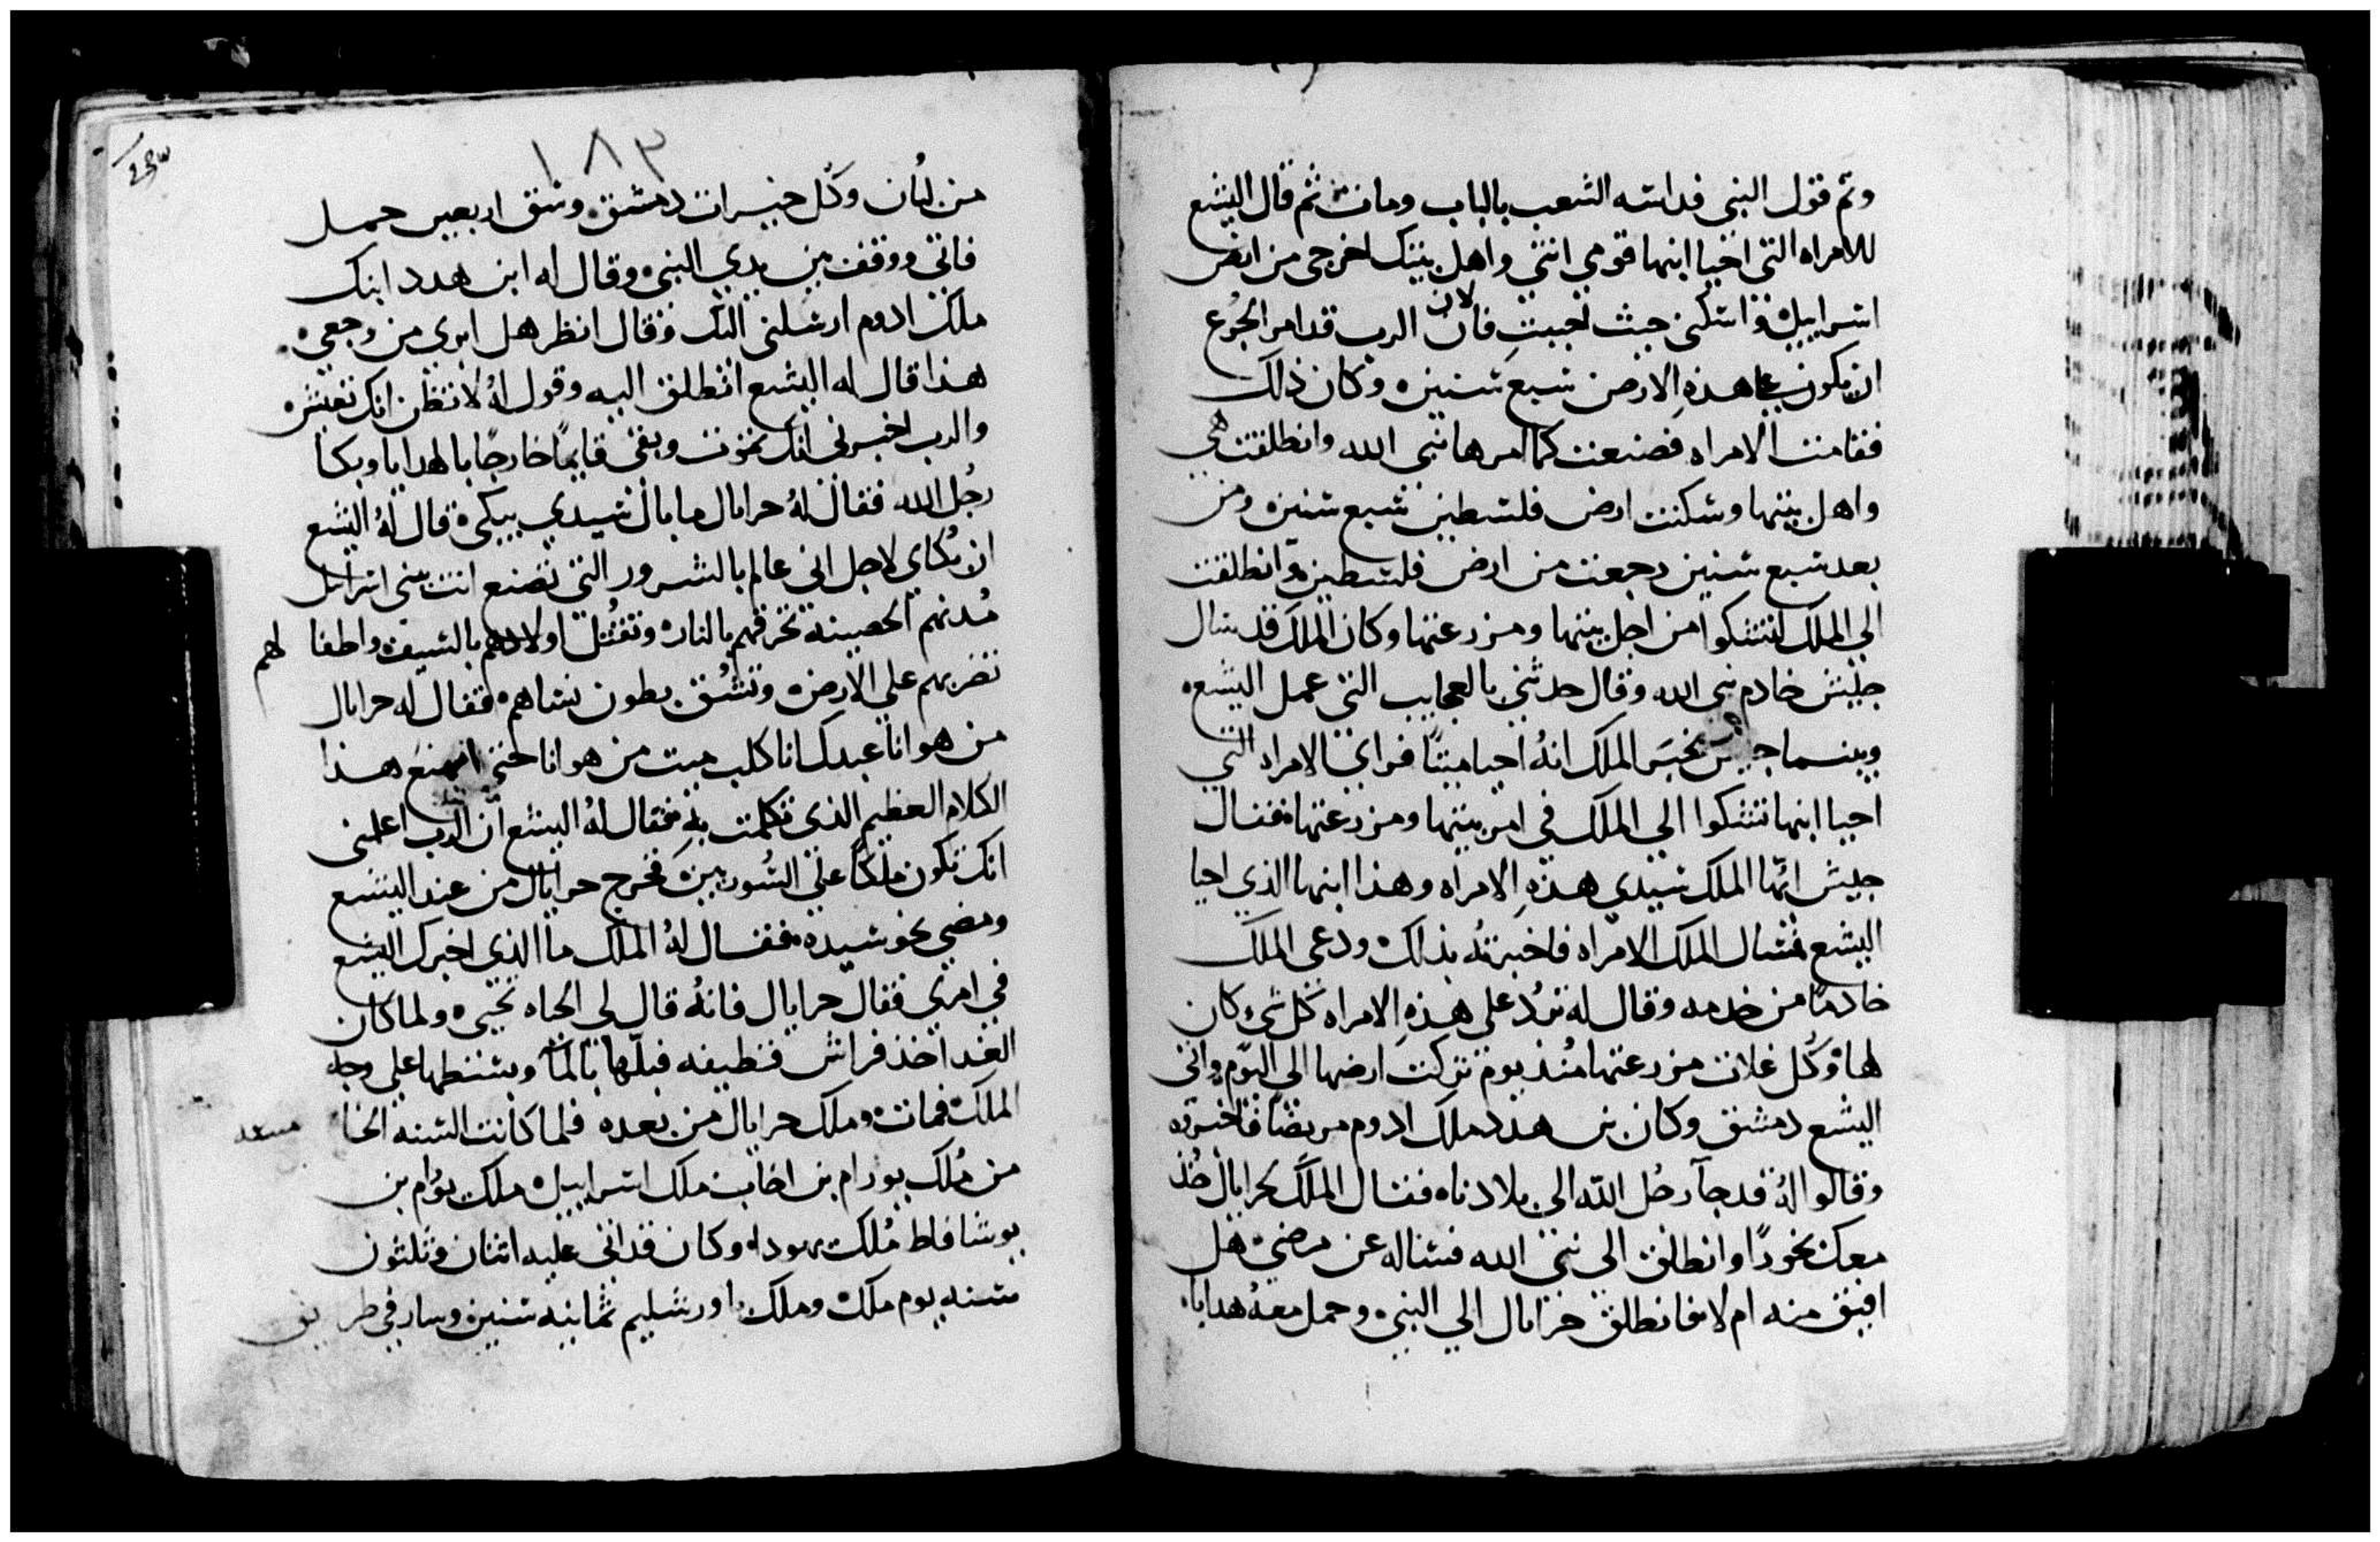 وتم قول النبي فداسه الشعب بالباب ومات ثم قال اليشع
للامراه التي احيا ابنها قومي انتي واهل بيتك اخرجي من ارض
اسراييل واسكني حيث تحبيت فان لان الرب قد امر الجوع
ان يكون على هذه الارض سبع سنين وكان ذلك
فقامت الامراه فصنعت كما امرها نبي الله وانطلقت هي
واهل بيتها وسكنت ارض فلسطين سبع سنين ومن
بعد سبع سنين رجعت من ارض فلسطين وانطلقت
الي الملك لتشكوا من اجل بيتها ومزرعتها وكان الملك قد سال
جليش خادم نبي الله وقال حدثني بالعجايب التي عمل اليشع
وبينما يخبر الملك انهُ احيا ميتًا فراي الامراه التي
احيا ابنها تشكوا الي الملك في امر بيتها ومزرعتها فقال
جيش ايها الملك سيدي هذهِ الامراه وهذا ابنها الذي احيا
اليشع فسال الملك الامراه فاخبرته بذلك ودعي الملك
خادمًا من خدمه وقال له تردُ على هذهِ الامراه كل شي كان
لها وكُل غلات مزرعتها مُنذ يوم تركت ارضها الي اليوم واتي
اليشع دمشق وكان بن هدد ملك ادوم مريضًا فاخبروه
وقالوا لهُ قد جآ رجُل الله الى بلادنا فقال الملك لحزايال خُذ
معك بخورًا وانطلق الي نبي الله فساله عن مرضي هل
افيق منه ام لا فانطلق حزايال الي النبي وحمل معهُ هدايا
١٨٣
من لبُان وكُل خيرات دمشق وسق اربعين حمل
فاتي ووقف بين يدي النبي وقال له ابن هدد ابنك
ملك ادوم ارسلني اليك وقال انظر هل ابري من وجعي
هذا قال له اليشع انطلق اليه وقول لهُ لا تظن انك تعيش
والرب اخبرني انك تموت وبقي قايمًا خارجًا بالهدايا وبكا
رجُل الله فقال لهُ حزايال ما بال سيدي يبكي قال لهُ اليشع
ان بُكاي لاجل اني عالم بالشرور التي تصنع انت ببني اسرايل
مُدنهم الحصينة تحرقهم بالنار وتقتُل اولادهم بالسيف واطفا لهم
تضربهم علي الارض وتشُق بطون نساهم فقال له حزايال
من هو انا عبدك انا كلب ميت من هو انا حتي اصنع هذا
الكلام العظيم الذي تكلمت بهِ فقال لهُ اليشع ان الرب اعلمني
انك تكون ملكًا علي السُوريين فخرج حزايال من عند اليشع
ومضي نحو سيده فقال لهُ الملك ما الذي اخبرك اليشع
في امري فقال حزايال فانهُ قال لي تحيي ولما كان
الغد اخذ فراش قطيفه فبلّها بالمآ وبسطها علي وجه
الملك فمات وملك حزايال من بعده فلما كانت السنه الخا مسه
من مُلك يورام بن اخاب ملك اسراييل ملك يورام بن
يوشافاط مُلك يهودا وكان قد اتي عليه اثنان وثلثون
سنه يوم ملك وملك باورشليم ثمانيه سنين وسار في طر يق